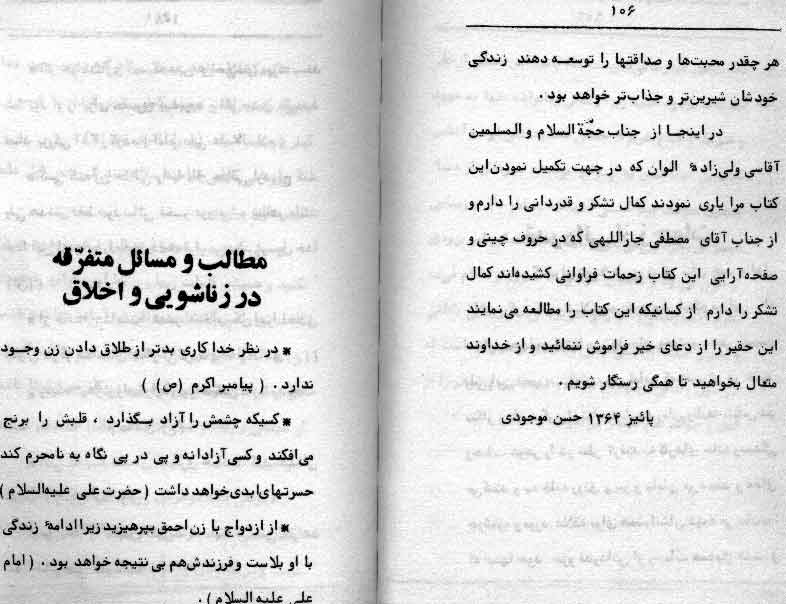 ۱۰۶
هر چقدر محبت‌ها و صداقتها را توسعـه دهند زندگی
خودشان شیرین‌تر و جذاب‌تر خواهد بود .
در اینجـا از جناب حجّة السلام و المسلمین
آقاسی ولی‌زادهٔ الوان که در جهت تکمیل نمودن این
کتاب مرا یاری نمودند کمال تشکر و قدردانی را دارم و
از جناب آقای مصطفی جاراللهی که در حروف چینی و
صفحه‌آرایی این کتاب زحمات فراوانی کشیده‌اند کمال
تشکر را دارم از کسانیکه این کتاب را مطالعه می‌نمایند
این حقیر را از دعای خیر فراموش ننمائید و از خداوند
متعال بخواهید تا همگی رستگار شویم .
پائیز ۱۳۶۴ حسن موجودی
مطالب و مسائل متفرّقه
در زناشویی و اخلاق
* در نظر خدا کاری بدتر از طلاق دادن زن وجـود
ندارد . ( پیامبر اکرم (ص) )
* کسیکه چشمش را آزاد بـگذارد ، قلبش را برنج
می‌افکند و کسی آزادانه و پی در پی نگاه به نامحرم کند
حسرتهای ابدی خواهد داشت ( حضرت علی علیه‌السلام )
* از ازدواج با زن احمق بپرهیزید زیرا ادامهٔ زندگی
با او بلاست و فرزندش هم بی نتیجه خواهد بود . ( امام
علی علیه السلام ) .